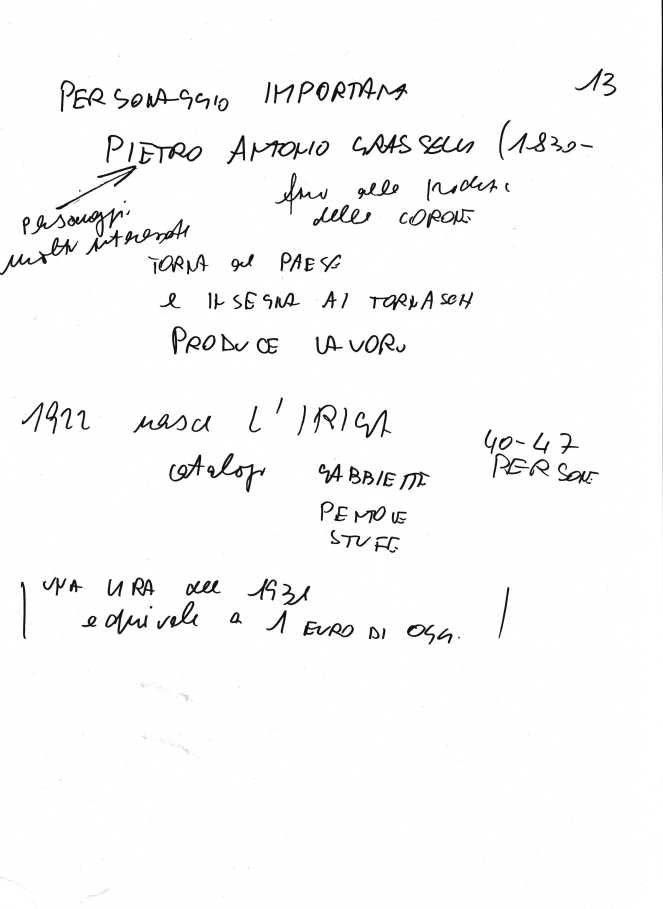 13
PERSONAGGIO IMPORTANTE
PIETRO ANTONIO GRASSELLI (1830-
fino alle
delle CORONE
personaggi
molto interessante
TORNA al PAESE
e INSEGNA AI TORNASCH
PRODUCE LAVORO
1922 nasce L'IRIGA
40-47
PERSONE
cataloghi GABBIETTE
PENTOLE
STUFE
UNA LIRA del 1931
equivale a 1 EURO DI OGGI.